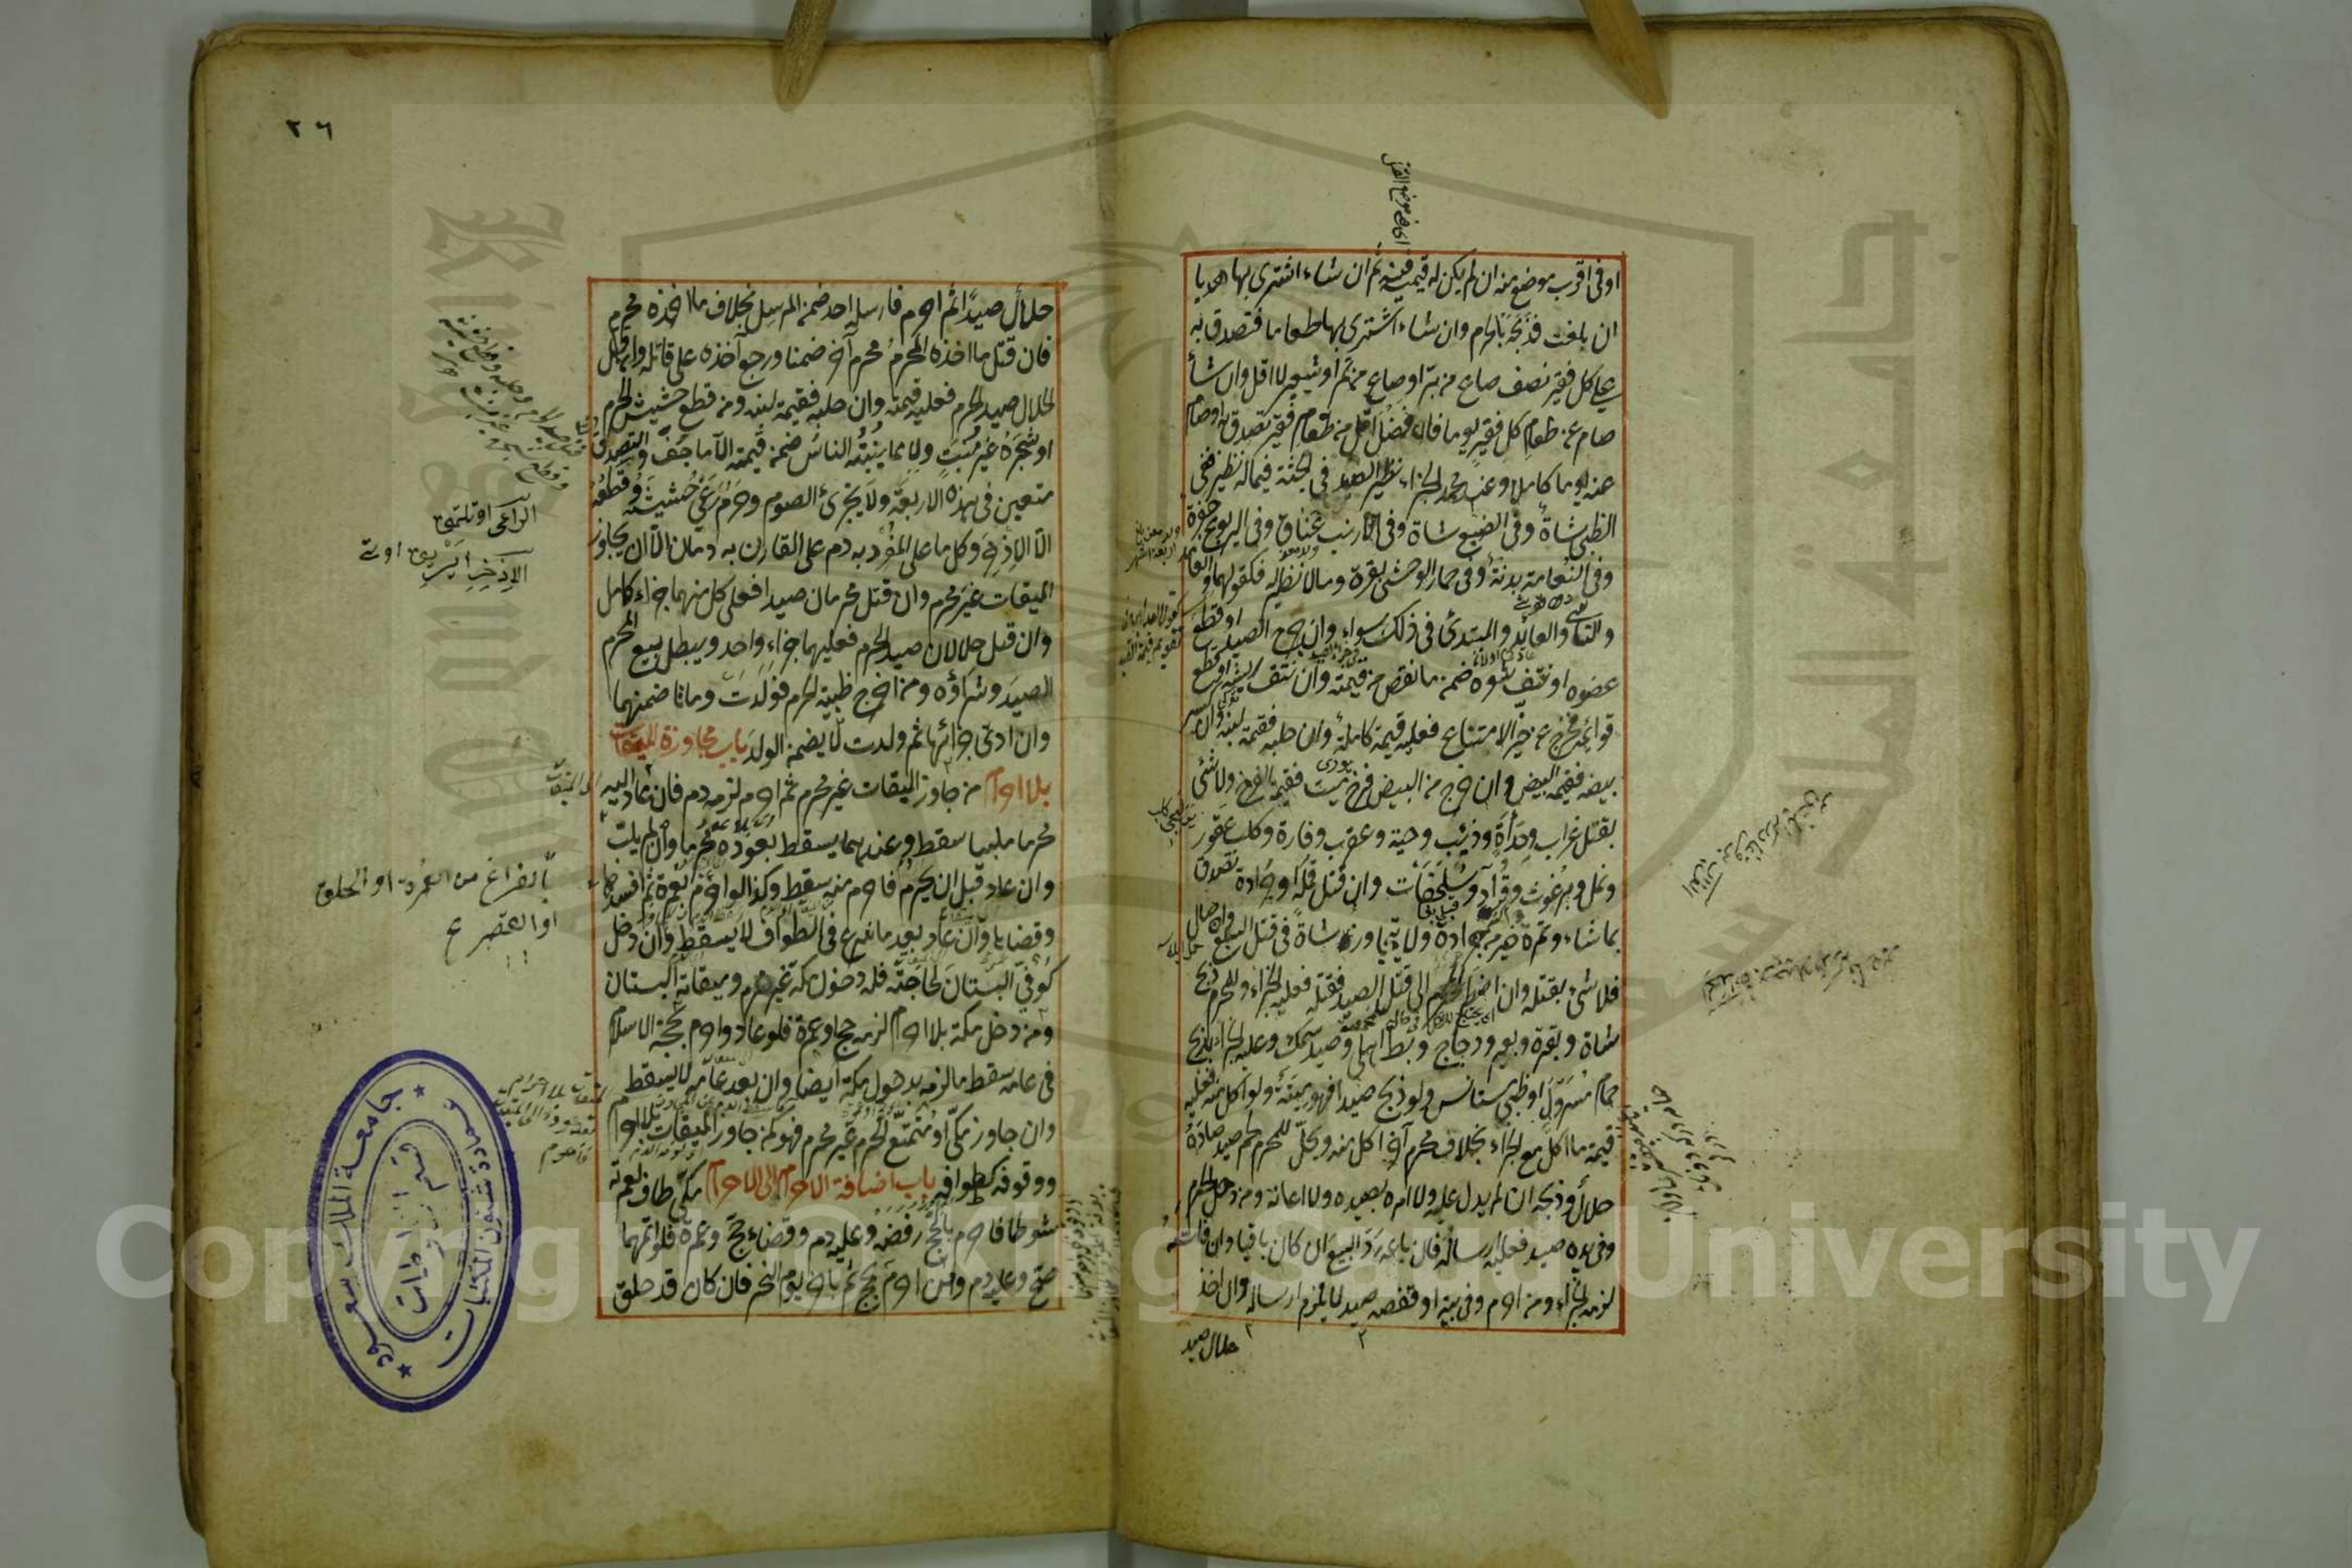 او فى اقرب موضع منه ان لم يكن له قيمة فيه ثم ان شاء اشترى بها هديا
ان بلغت فذبحه بالحرم وان شاء اشترى بها طعاما فتصدق به
على كل فقير نصف صاع من بر او صاع من تمر او شعير لا اقل وان شاء
صام عن طعام كل فقير يوما فان فضل اقل من طعام فقير تصدق به او صام
عنه يوما كاملا وعند محمد الجزاء نظير الصيد فى الجثة فيما له نظير ففى
الظبى شاة وفى الضبع شاة وفى الارنب عناق وفى اليربوع جفرة
وفى النعامة بدنة وفى حمار الوحشى بقرة وما لا نظير له فكقولهما والعامد
والناسى والعائد والمبتدئ فى ذلك سواء وان جرح الصيد او قطع
عضوه او نتف شعره ضمن ما نقص من قيمته وان نتف ريشه او قطع
قوائمه فخرج عن حيز الامتناع فعليه قيمة كاملة وان حلبه فقيمة لبنه وان كسر
بيضه فقيمة البيض وان خرج من البيض فرخ ميت فقيمة الفرخ ولا شئ
بقتل غراب وحدأة وذئب وحية وعقرب وفارة وكلب عقور
ونمل وبرغوث وقراد وسلحفات وان قتل قملة او جرادة تصدق
بما شاء وتمرة خير من جرادة ولا يتجاوز شاة فى قتل السبع وان صال
فلا شئ بقتله وان اضطر المحرم الى قتل الصيد فقتله فعليه الجزاء وللمحرم ذبح
شاة وبقرة وبعير ودجاج وبط اهلى وصيد سمك وعليه الجزاء بذبح
حمام مسرول او ظبى مستانس ولو ذبح صيدا فهو ميتة ولو اكل منه فعليه
قيمة ما اكل مع الجزاء بخلاف محرم آخر اكل منه ويحل للمحرم لحم صيد صاده
حلال وذبحه ان لم يدل عليه ولا امره بصيده ولا اعانه ومن دخل الحرم
وفى يده صيد فعليه ارساله فان باعه رد البيع ان كان باقيا وان فات
لزمه الجزاء ومن احرم وفى بيته او قفصه صيد لا يلزم ارساله وان اخذ
حلال صيد
٢٦
حلال صيدا ثم احرم فارسله احد ضمن المرسل بخلاف ما اخذه محرم
فان قتل ما اخذه المحرم محرم آخر ضمنا ورجع آخذه على قاتله وان قتل
الحلال صيد الحرم فعليه قيمته وان حلبه فقيمة لبنه ومن قطع حشيش الحرم
او شجره غير منبت ولا مما ينبته الناس ضمن قيمته الا ما جف والتصدق
متعين فى هذه الاربعة ولا يجزئ الصوم وحرم رعى حشيشه وقطعه
الا الاذخر وكل ما على المفرد به دم على القارن به دمان الا ان يجاوز
الميقات غير محرم وان قتل محرمان صيدا فعلى كل منهما جزاء كامل
وان قتل حلالان صيد الحرم فعليهما جزاء واحد ويبطل بيع المحرم
الصيد وشراؤه ومن اخرج ظبية الحرم فولدت وماتا ضمنهما
وان ادى جزائها ثم ولدت لا يضمن الولد باب مجاوزة الميقات
بلا احرام من جاوز الميقات غير محرم ثم احرم لزمه دم فان عاد اليه
محرما ملبيا سقط وعندهما يسقط بعوده محرما وان لم يلب
وان عاد قبل ان يحرم فاحرم منه سقط وكذا لو احرم بعمرة ثم افسدها
وقضاها وان عاد بعد ما شرع فى الطواف لا يسقط وان دخل
كوفى البستان لحاجته فله دخول مكة غير محرم وميقاته البستان
ومن دخل مكة بلا احرام لزمه حج او عمرة فلو عاد واحرم بحجة الاسلام
فى عامه سقط ما لزمه بدخول مكة ايضا وان بعد عامه لا يسقط
وان جاوز مكى او متمتع الحرم غير محرم فهو كمن جاوز الميقات بلا احرام
ووقوفه كطوافه باب اضافة الاحرام الى الاحرام مكى طاف لعمرته
شوطا فاحرم بالحج رفضه وعليه دم وقضاء حج وعمرة فلو اتمهما
صح وعليه دم ومن احرم بحج ثم بآخر يوم النحر فان كان قد حلق
بالفراغ من العمرة او الحلق
او القصر ع
جامعة الملك سعود
عمادة شئون المكتبات
قسم المخطوطات
Copyright © King Saud University